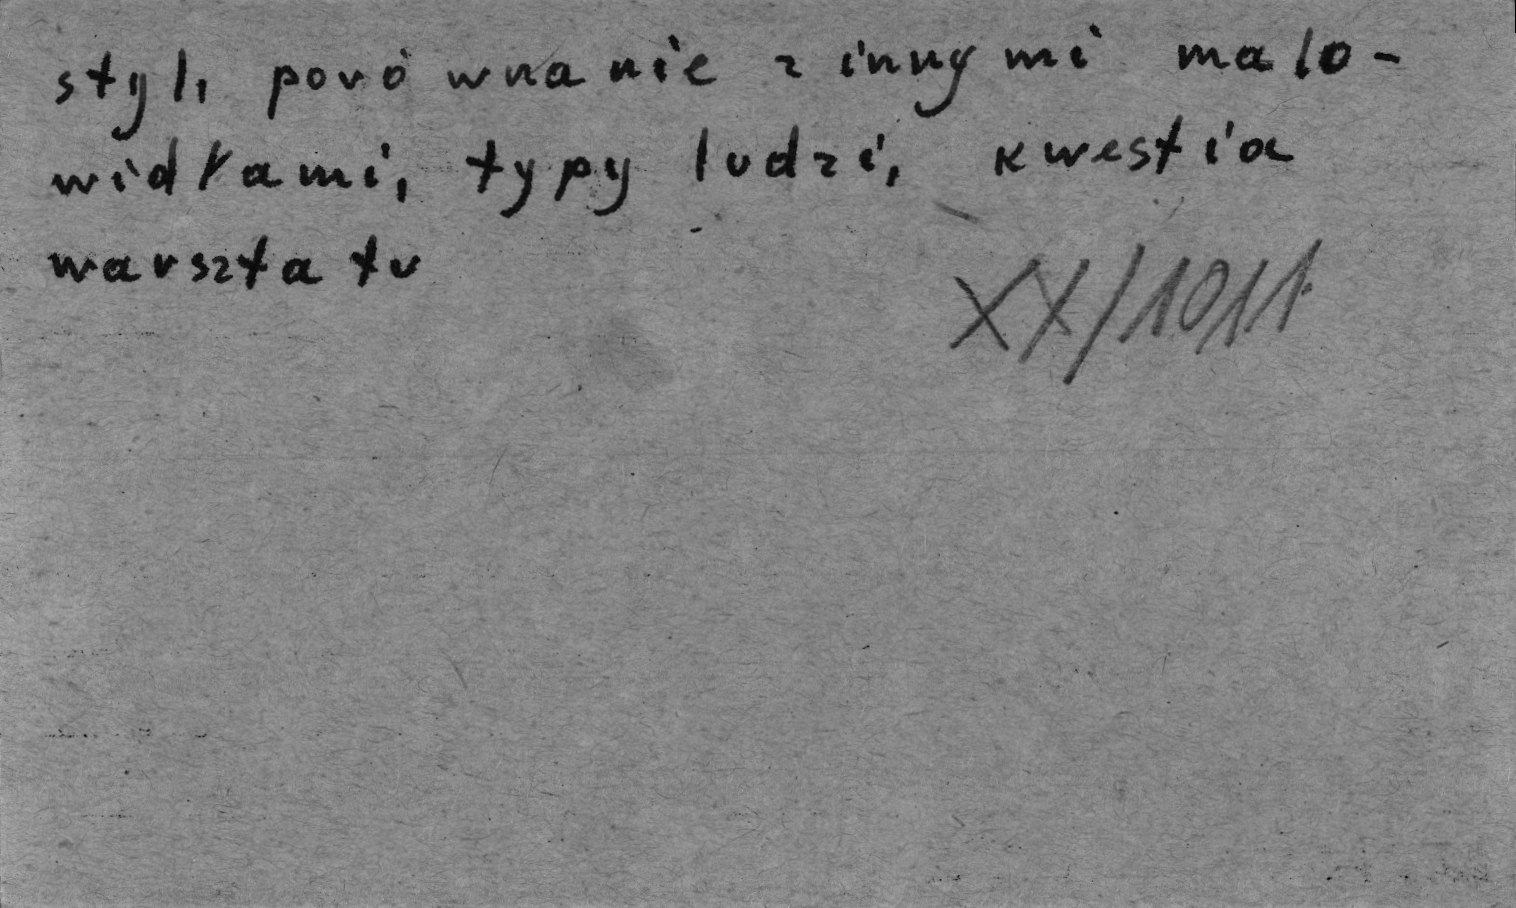 styl, porównanie z innymi malo-
widłami, typy ludzi, kwestia
warsztatu
XX/1011